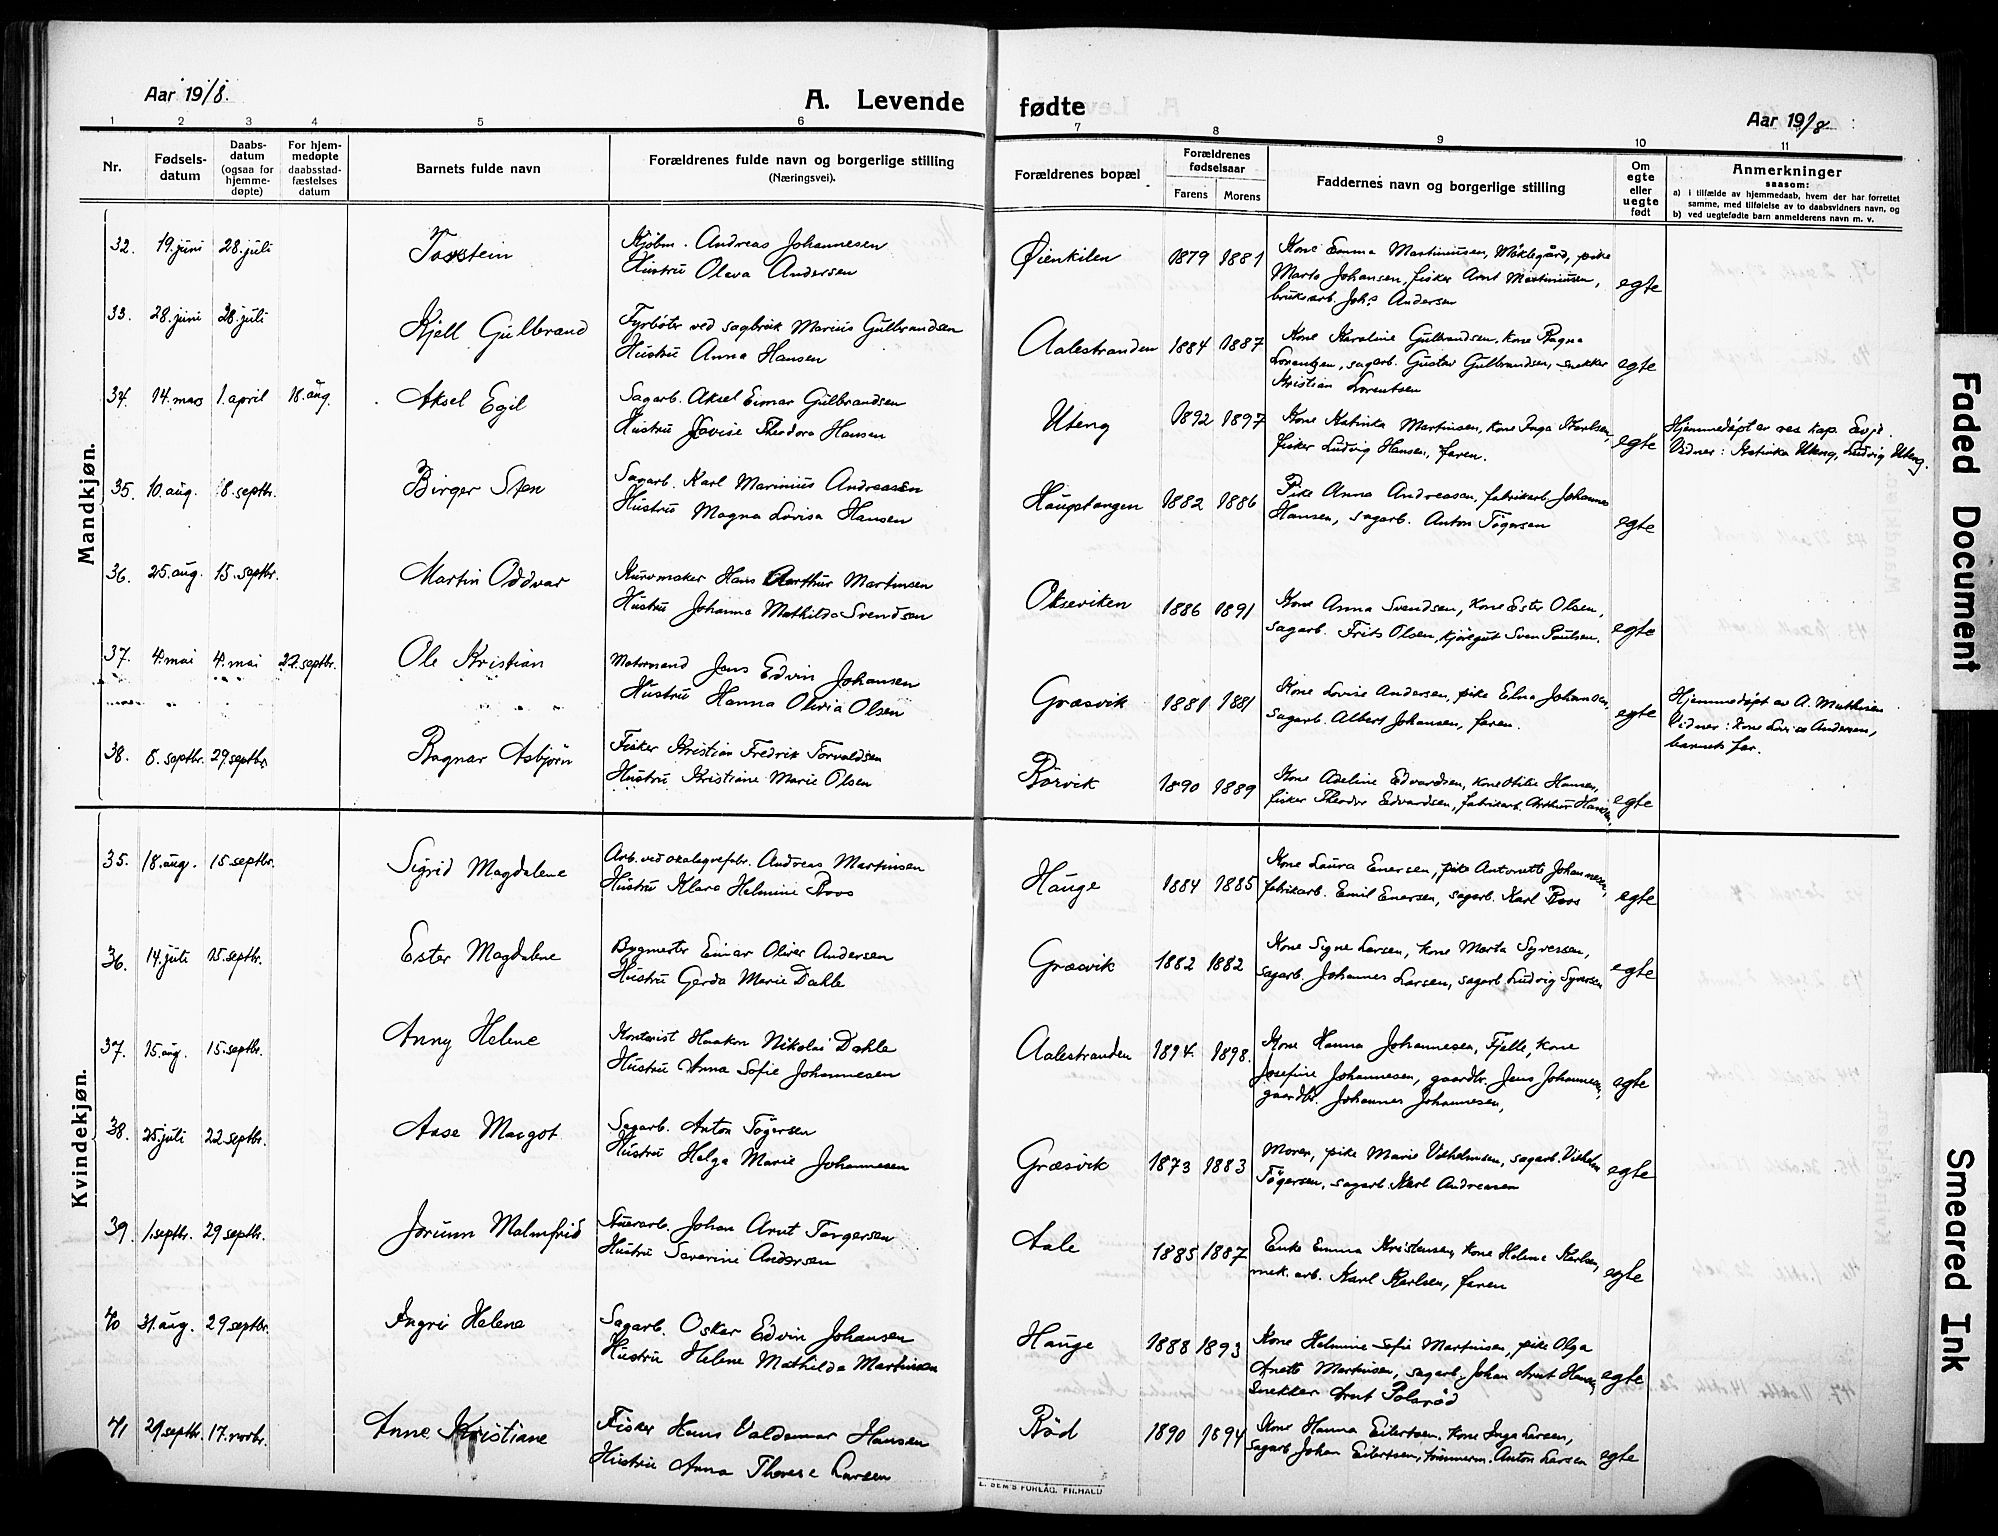 Aar 1918.
A. Levende fødte
Aar 1918
1 2 3 4 5 6 7 8 9 10 11
Nr.
Fødselsdatum
Daabsdatum (ogsaa for hjemmedøpte)
For hjemmedøpte daabsstadfæstelses datum
Barnets fulde navn
Forældrenes fulde navn og borgerlige stilling
(Næringsvei).
Forældrenes bopæl
Forældrenes fødselsaar
Farens Morens
Faddernes navn og borgerlige stilling
Om egte eller uegte født
Anmerkninger
saasom:
a) i tilfælde av hjemmedaab, hvem der har forrettet samme, med tilføielse av to daabsvidners navn, og
b) ved uegtefødte barn anmelderens navn m. v.
Mandkjøn.
32. 19. juni 28. juli Torstein
Kjøbm. Andreas Johannesen
Hustru Olava Andersen
Øienkilen 1879 1881
Kone Emma Martiniusen, Møklegård, pike
Marta Johansen, fisker Arnt Martiniusen,
bruksarb. Johs Andersen
egte
33. 28. juni 28. juli Kjell Gulbrand
Fyrbøter ved sagbruk Marius Gulbrandsen
Hustru Anna Hansen
Aalestranden 1884 1887
Kone Karoline Gulbrandsen, kone Ragna
Lorentzen, sagarb. Gustav Gulbrandsen, snekker
Kristian Lorentsen
egte
34. 14. mars 1. april 18. aug. Aksel Egil
Sagarb. Aksel Eimar Gulbrandsen
Hustru Lovise Theodora Hansen
Uteng 1892 1897
Kone Katinka Martinsen, kone Inga Karlsen,
fisker Ludvig Hansen, faren.
egte
Hjemmedøpt av res. kap. Evje.
Vidner: Katinka Uteng, Ludvig Uteng.
35. 10. aug. 8. septbr. Birger Sten
Sagarb. Karl Marinius Andreasen
Hustru Magna Lovisa Hansen
Hauptangen 1882 1886
Pike Anna Andreasen, fabrikarb. Johannes
Hansen, sagarb. Anton Tøgersen
egte
36. 25. aug. 15. septbr. Martin Oddvar
Kurvmaker Hans Arthur Martinsen
Hustru Johanna Mathilda Svendsen
Okseviken 1886 1891
Kone Anna Svendsen, kone Ester Olsen,
sagarb. Frits Olsen, kjøregut Sven Paulsen.
egte
37. 4. mai 4. mai 22. septbr. Ole Kristian
Motormand Jens Edvin Johansen
Hustru Hanna Olivia Olsen
Græsvik 1881 1881
Kone Lovise Andersen, pike Elna Johansen,
sagarb. Albert Johansen, faren.
egte
Hjemmedøpt av A. Mathisen
Vidner: kone Lovise Andersen,
barnets far.
38. 8. septbr. 29. septbr. Ragnar Asbjørn
Fisker Kristian Fredrik Torvaldsen
Hustru Kristiane Marie Olsen
Rørvik 1890 1889
Kone Adeline Edvardsen, kone Otilie Hansen,
fisker Theodor Edvardsen, fabrikarb. Arthur Hansen,
egte
Kvindekjøn.
35. 18. aug. 15 septbr. Sigrid Magdalene
Andreas Martinsen
Hustru Klara Helmine Roos
Hauge 1884 1885
Kone Laura Enersen, pike Antonette Johannesen,
fabrikarb. Emil Enersen, sagarb. Karl Roos
egte
36. 14. juli 15. septbr. Ester Magdalene
Bygmester Einar Oliver Andersen
Hustru Gerda Marie Dahle
Græsvik 1882 1882
Kone Signe Larsen, kone Marta Syversen,
sagarb. Johannes Larsen, sagarb. Ludvig Syversen
egte
37. 15. aug. 15. septbr. Anny Helene
Kontorist Haakon Nikolai Dahle
Hustru Anna Sofie Johannesen
Aalestranden 1894. 1898.
Kone Hanna Johannesen, Fjelle, kone
Josefine Johannesen, gaardbr. Jens Johannesen,
gaardbr. Johannes Johannesen,
egte
38. 25. juli 22 septbr. Aase Margot
Sagarb. Anton Tøgersen
Hustru Helga Marie Johannesen
Græsvik 1873 1883
Moren, pike Marie Vilhelmsen, sagarb. Vilhelm
Tøgersen, sagarb. Karl Andreasen
egte
39 1. septbr. 29 septbr. Jorunn Malmfrid
Stuerarb. Johan Arnt Torgersen
Hustru Severine Andersen
Aale 1885 1887
Enke Emma Kristensen, kone Helene Karlsen,
mek. arb. Karl Karlsen, faren
egte
40 31. aug. 29 septbr. Ingri Helene
Sagarb. Oskar Edvin Johansen
Hustru Helene Mathilda Martinsen
Hauge 1888 1893
Kone Helmine Sofie Martinsen, pike Olga
Anette Martinsen, sagarb. Johan Arnt Hansen
snekker Arnt Polsrød
egte
41 29 septbr. 17. novbr. Anne Kristiane
Fisker Hans Valdemar Hansen
Hustru Anna Therese Larsen
Rød 1890 1894
Kone Hanna Eilertsen, kone Inga Larsen,
sagarb. Johan Eilertsen, tømmerm. Anton Larsen
egte
E. SEM'S FORLAG, FR.HALD
Faded Document
Smeared Ink